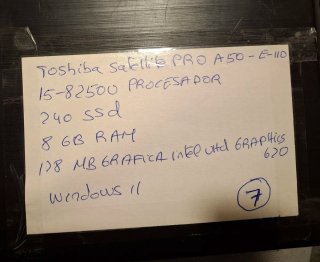 Toshiba Satellite PRO A50-E-110
i5-8250U PROCESADOR
240 SSd
8 GB RAM
128 MB GRAFICA intel uhd GRAPHICS
620
Windows 11
7